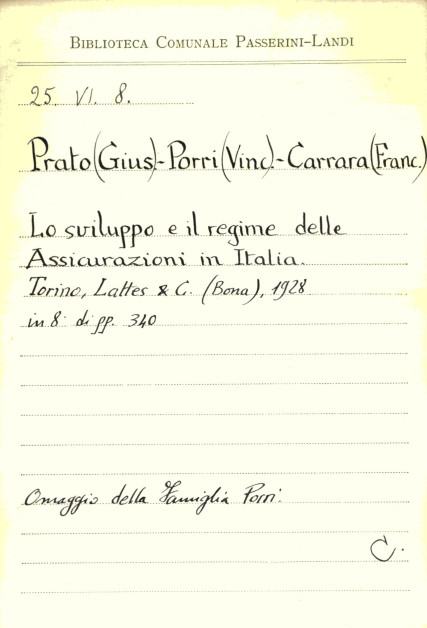 BIBLIOTECA COMUNALE PASSERINI-LANDI
25. VI. 8.
Prato (Gius)-Porri (Vinc)-Carrara (Franc.)
Lo sviluppo e il regime delle
Assicurazioni in Italia.
Torino, Lattes & C. (Bona), 1928
in 8° di pp. 340
Omaggio della Famiglia Porri.
C.